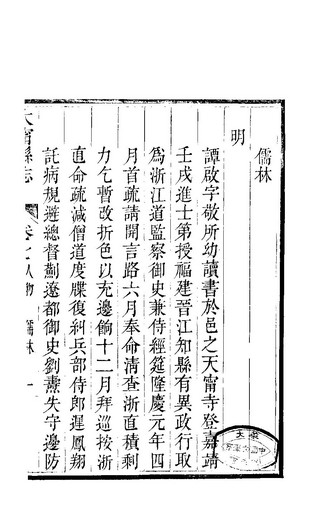 儒林
明
譚啟字敬所幼讀書於邑之天甯寺登嘉靖
壬戌進士第授福建晉江知縣有異政行取
為浙江道監察御史兼侍經筵隆慶元年四
月首疏請開言路六月奉命清查浙直積剩
力乞暫改折色以充邊餉十二月拜巡按浙
直命疏減僧道度牒復糾兵部侍郎遲鳳翔
託病規避總督薊遼都御史劉燾失守邊防
大甯縣志
卷七人物
儒林
一